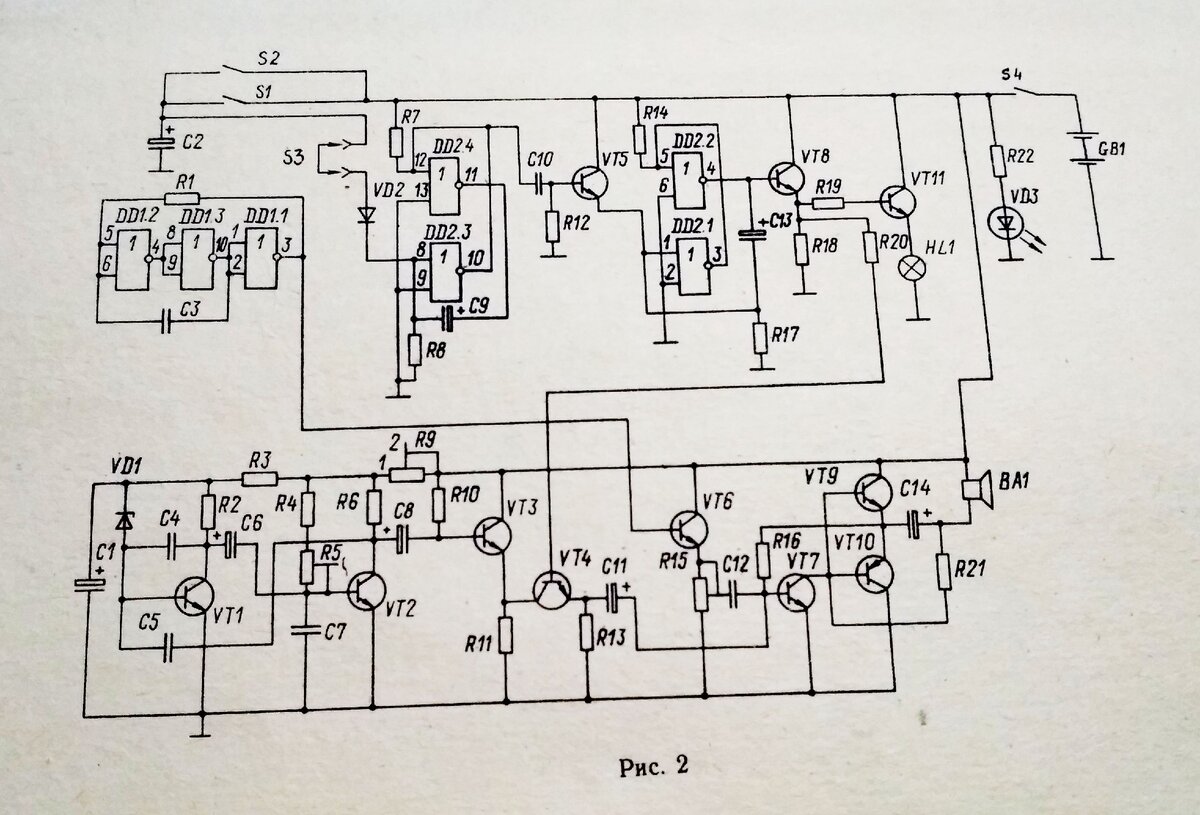 S2
S1
S4
C2
S3
R7
12
DD2.4
1
11
13
VD2
C10
R12
VT5
R14
DD2.2
5
1
4
6
VT8
R19
VT11
R22
VD3
GB1
R1
DD1.2
DD1.3
DD1.1
5
1
4
6
8
1
10
9
1
1
3
2
C3
DD2.3
8
1
10
9
+ C9
R8
DD2.1
1
1
3
2
+ C13
R18
R20
HL1
R17
VD1
R3
2
R9
1
R2
R4
R6
R10
C4
C6
C8
VT3
C1
R5
VT1
VT2
C5
C7
R11
VT4
C11
R13
VT6
R15
C12
R16
VT7
VT9
C14
VT10
BA1
R21
Рис. 2